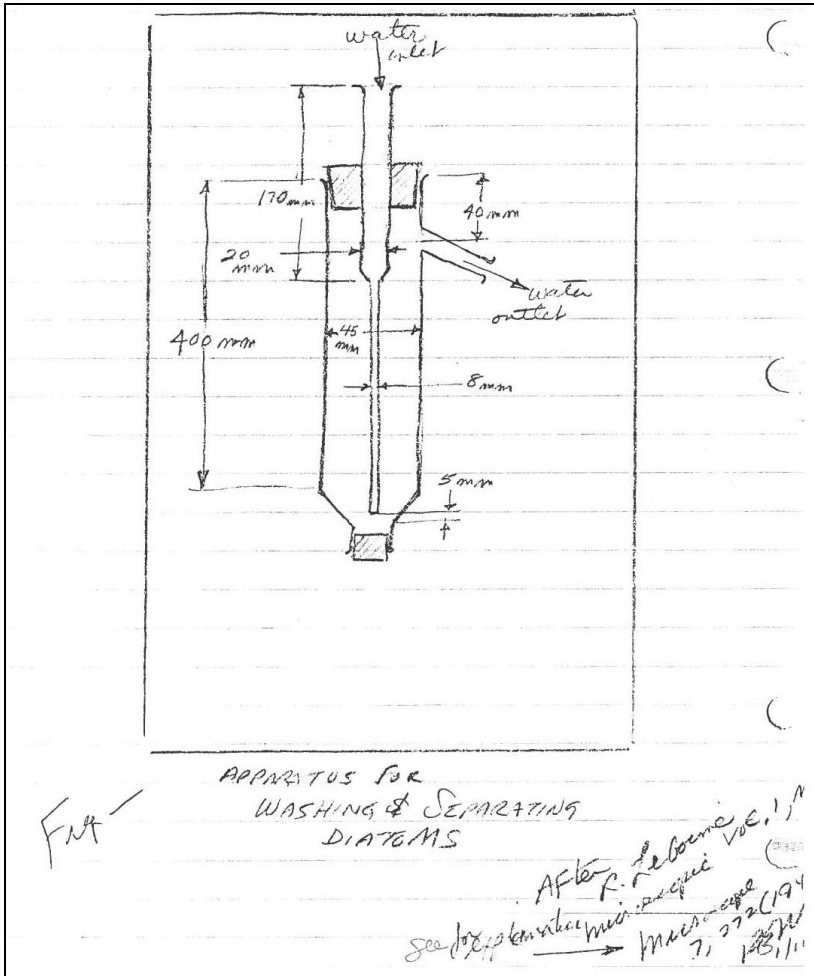 water
inlet
170mm
40mm
20
mm
water
outlet
45
mm
400mm
8mm
5mm
APPARATUS FOR
WASHING & SEPARATING
DIATOMS
After
microscopie Vol. 1,
see for
Microscope
7, 272 (194